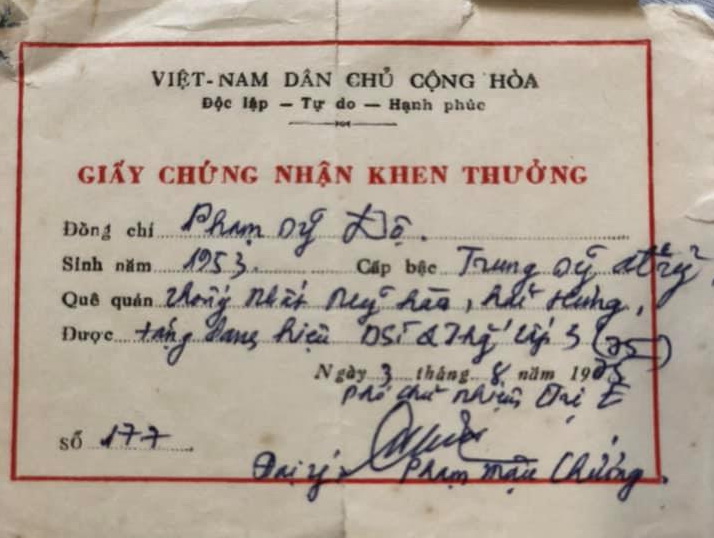 VIỆT-NAM DÂN CHỦ CỘNG HÒA
Độc lập — Tự do — Hạnh phúc
GIẤY CHỨNG NHẬN KHEN THƯỞNG
Đồng chí Phạm Sỹ Độ.
Sinh năm 1953. Cấp bậc Trung sỹ
Quê quán Thống Nhất Mỹ Hào, Hải Hưng,
Được tặng danh hiệu
Ngày 3 tháng 8 năm 1975
Phó chủ nhiệm
SỐ 177
Đại úy Phạm Mậu Chưởng.